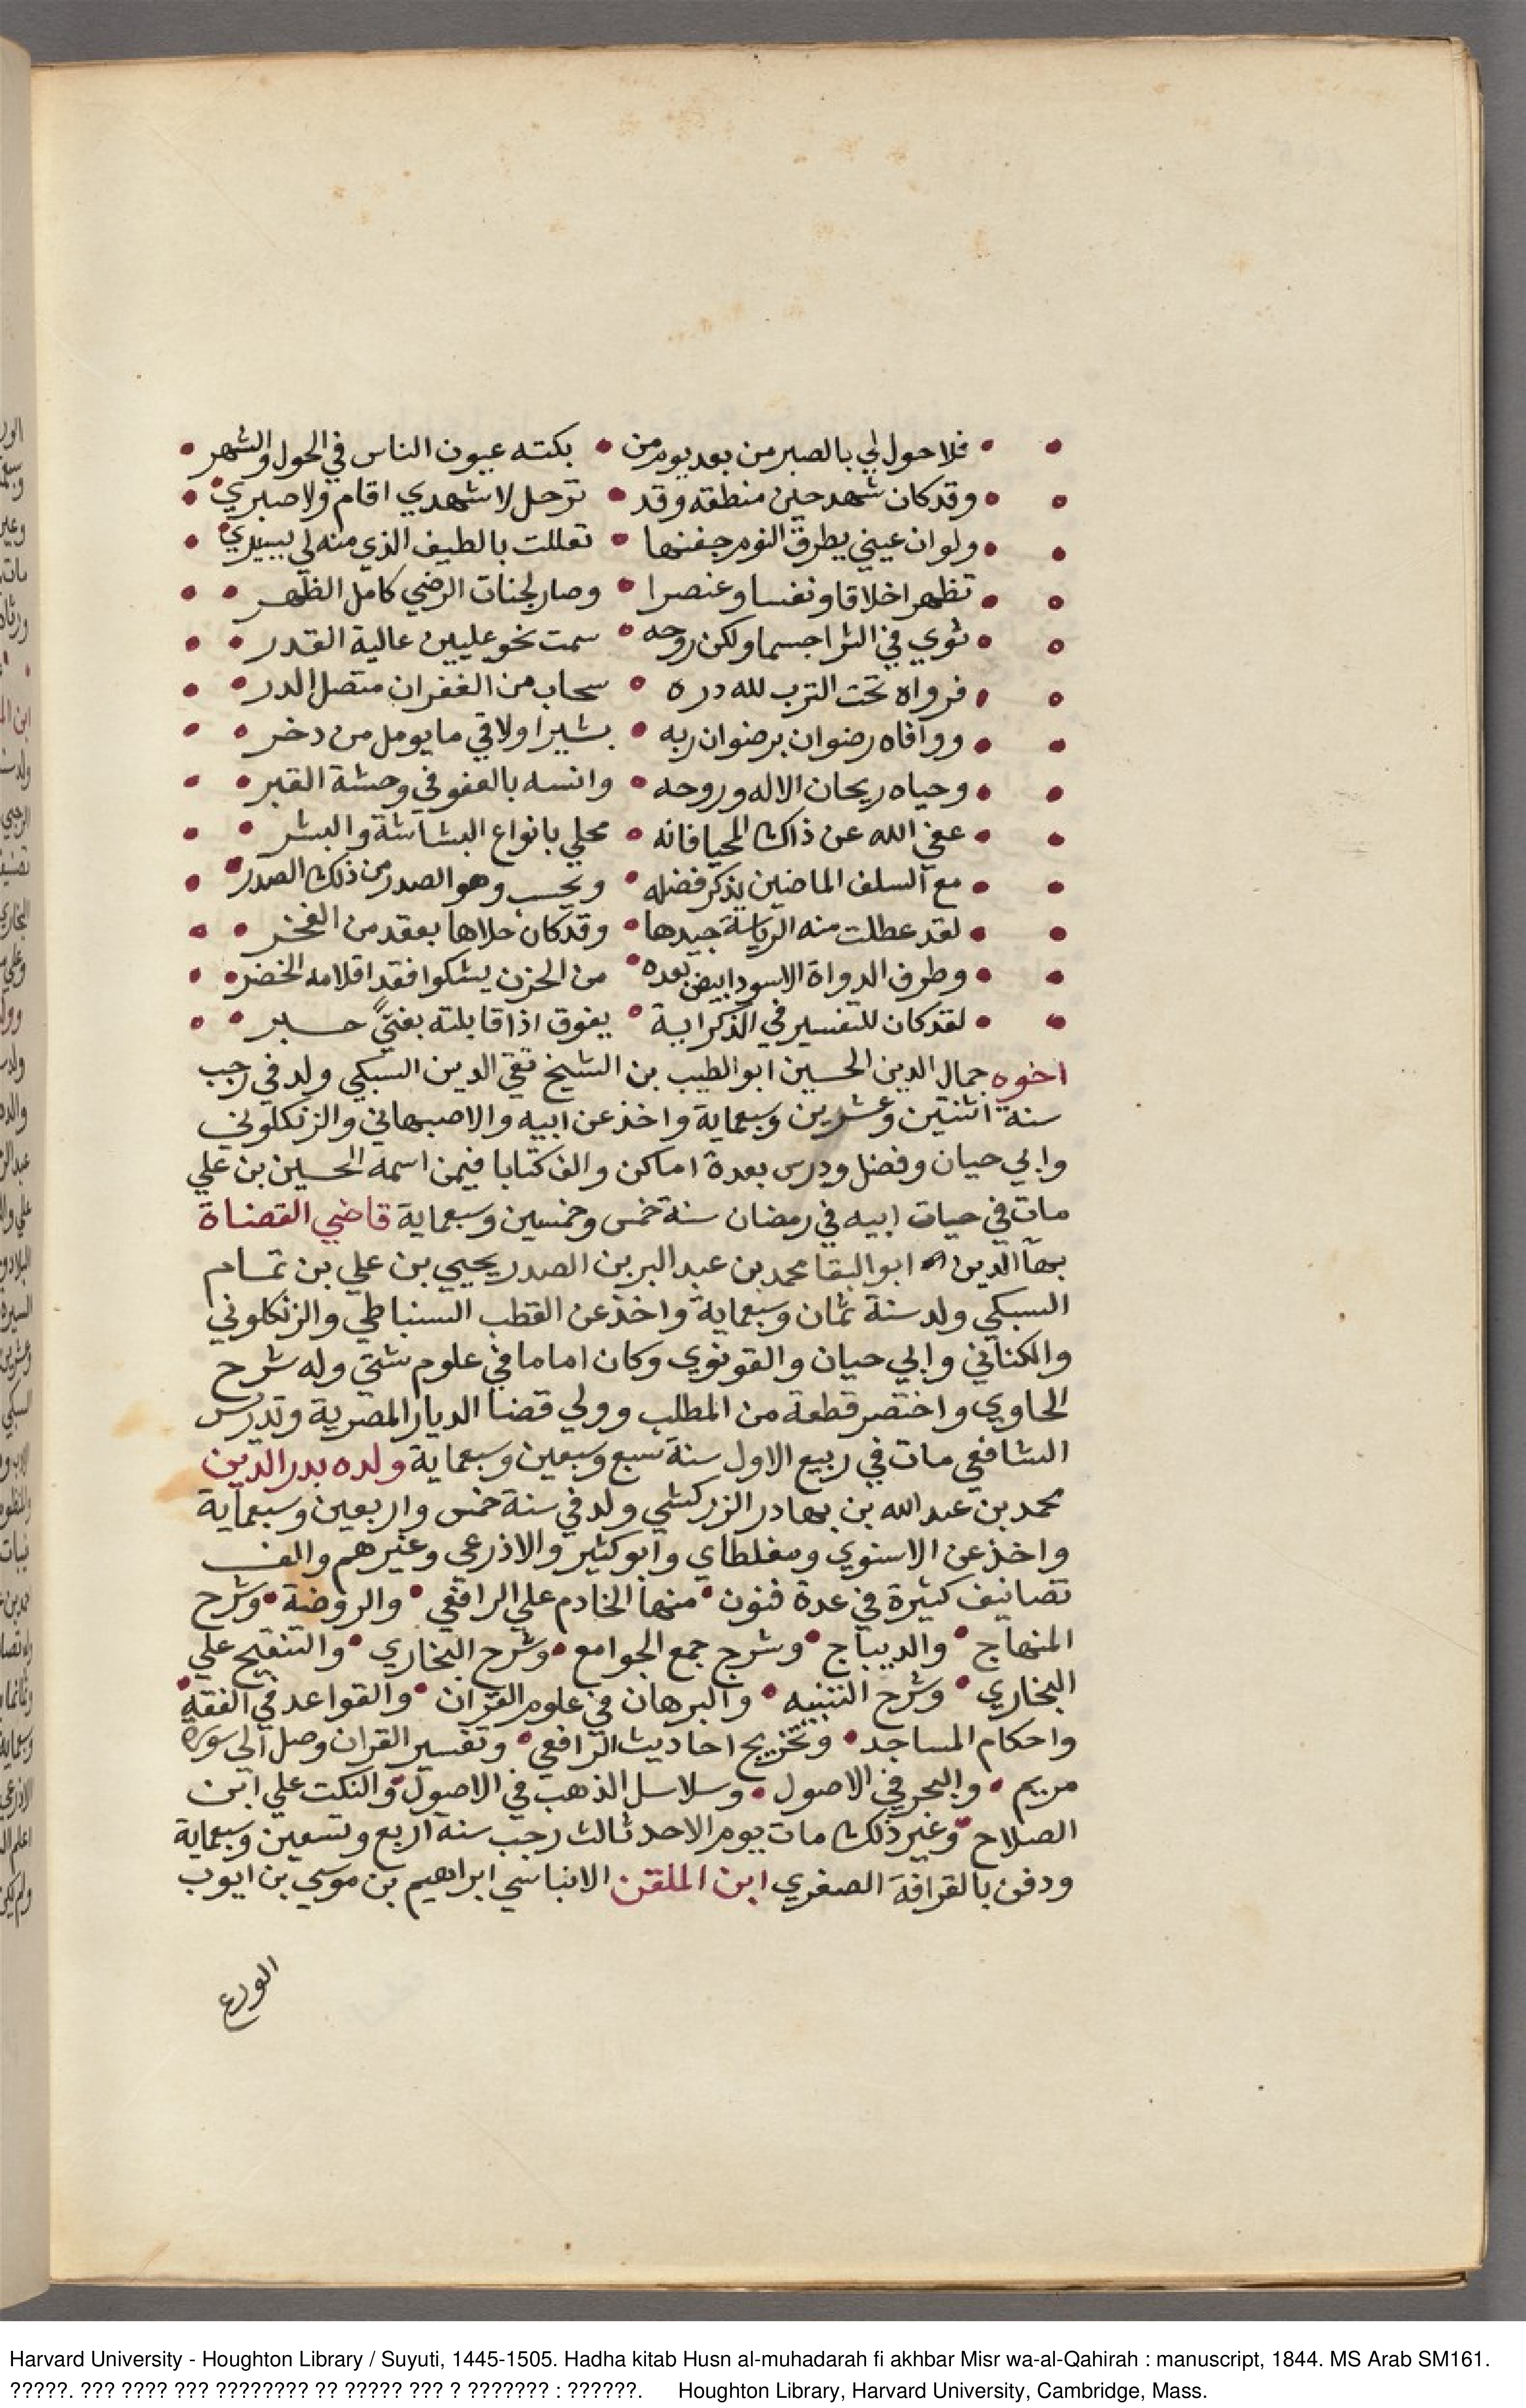 فلا حول لي بالصبر من بعد يوم من • بكته عيون الناس في الحول والشهر
وقد كان شهد حين منطقه وقد • ترحل لا شهدي اقام ولا صبري
ولو ان عيني يطرق النوم جفنها • تعللت بالطيف الذي منه لي يسري
تطهر اخلاقا ونفسا وعنصرا • وصار لجنات الرضي كامل الطهر
ثوي في الثرا جسما ولكن روحه • سمت نحو عليين عالية القدر
فرواه تحت الترب لله دره • سحاب من الغفران متصل الدر
ووافاه رضوان برضوان ربه • بشيرا ولاقي ما يومل من دخر
وحياه ريحان الاله وروحه • وانسه بالعفو في وحشة القبر
عفي الله عن ذاك المحيا فانه • محلي بانواع البشاشة والبشر
مع السلف الماضين يذكر فضله • ويحسب وهو الصدر من ذلك الصدر
لقد عطلت منه الرياسة جيدها • وقد كان حلاها بعقد من الفخر
وطرف الدواة الاسود ابيض بعده • من الحزن يشكوا فقد اقلامه الخضر
لقد كان للتفسير في الذكر اية • يفوق اذا قابلته بفتيً حبر
اخوه جمال الدين الحسين ابو الطيب بن الشيخ تقي الدين السبكي ولد في رجب
سنة اثنتين وعشرين وسبعماية واخذ عن ابيه والاصبهاني والزنكلوني
وابي حيان وفضل ودرس بعدة اماكن والف كتابا فيمن اسمه الحسين بن علي
مات في حيات ابيه في رمضان سنة خمس وخمسين وسبعماية قاضي القضاة
بهآ الدين ابو البقا محمد بن عبد البر بن الصدر يحيي بن علي بن تمام
السبكي ولد سنة ثمان وسبعماية واخذ عن القطب السنباطي والزنكلوني
والكناني وابي حيان والقونوي وكان اماما في علوم شتي وله شرح
الحاوي واختصر قطعة من المطلب وولي قضا الديار المصرية وتدرس
الشافعي مات في ربيع الاول سنة سبع وسبعين وسبعماية ولده بدر الدين
محمد بن عبد الله بن بهادر الزركشي ولد في سنة خمس واربعين وسبعماية
واخذ عن الاسنوي ومغلطاي وابو كثير والاذرعي وغيرهم والف
تصانيف كثيرة في عدة فنون • منها الخادم علي الرافعي • والروضة • وشرح
المنهاج • والديباج • وشرح جمع الجوامع • وشرح البخاري • والتنقيح علي
البخاري • وشرح التنبيه • والبرهان في علوم القران • والقواعد في الفقه •
واحكام المساجد • وتخريج احاديث الرافعي • وتفسير القران وصل الي سورة
مريم • والبحر في الاصول • وسلاسل الذهب في الاصول • والنكت علي ابن
الصلاح • وغير ذلك مات يوم الاحد ثالث رجب سنة اربع وتسعين وسبعماية
ودفن بالقرافة الصغري ابن الملقن الانباسي ابراهيم بن موسي بن ايوب
الورع
Harvard University - Houghton Library / Suyuti, 1445-1505. Hadha kitab Husn al-muhadarah fi akhbar Misr wa-al-Qahirah : manuscript, 1844. MS Arab SM161.
?????. ??? ???? ??? ???????? ?? ????? ??? ? ??????? : ??????. Houghton Library, Harvard University, Cambridge, Mass.